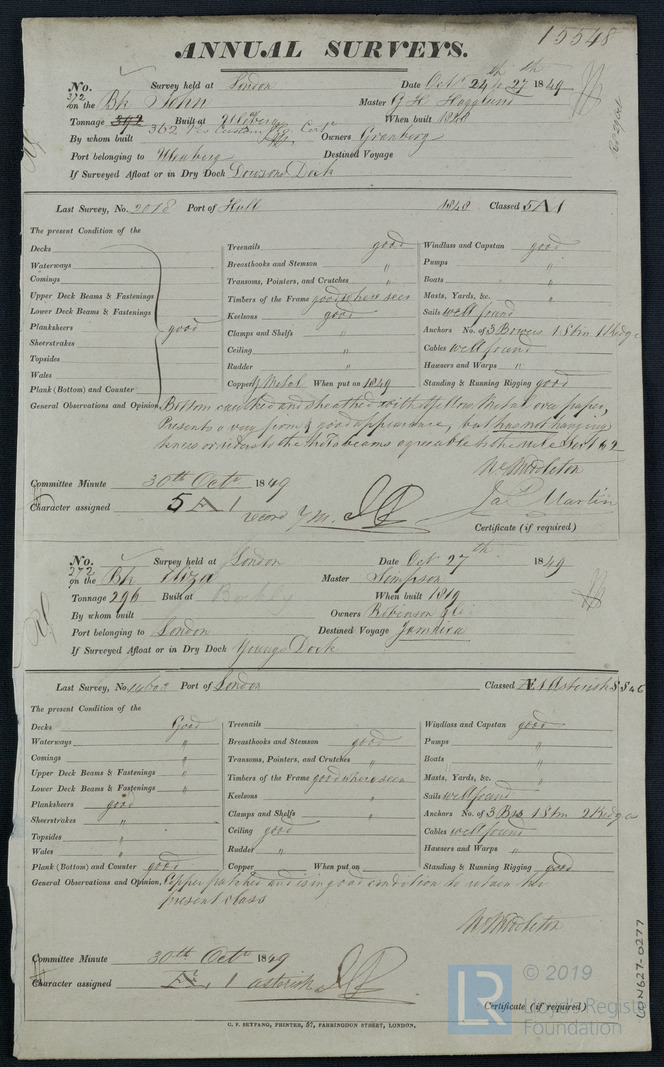 15548
ANNUAL SURVEYS.
No. 372 Survey held at London Date Octr 24th & 27th 1849
on the Bk John Master G H Hagglund
Tonnage 392 Built at When built 1848
362 Per Custom
By whom built Owners Granberg
Port belonging to Uleaborg Destined Voyage
If Surveyed Afloat or in Dry Dock Dowsons Dock
Last Survey, No. 2018 Port of Hull 1848 Classed 5 A 1
The present Condition of the
Decks Treenails good Windlass and Capstan good
Waterways Breasthooks and Stemson " Pumps "
Comings Transoms, Pointers, and Crutches " Boats "
Upper Deck Beams & Fastenings Timbers of the Frame good where seen Masts, Yards, &c. "
Lower Deck Beams & Fastenings Keelsons good Sails well found
Planksheers good Clamps and Shelfs " Anchors No. of 3 Bowers 1 Strm 1 Kedge
Sheerstrakes Ceiling " Cables well found
Topsides Rudder " Hawsers and Warps "
Wales Copper Y Metal When put on 1849 Standing & Running Rigging good
Plank (Bottom) and Counter
General Observations and Opinion, Bottom caulked and sheathed with Yellow Metal over paper,
Presents a very firm & good appearance, but has not hanging
knees or riders to the hold beams agreeable to the rule Sect 62
Wm Middleton
Jas Martin
Committee Minute 30th Octr 1849
Character assigned 5 A 1
record Y M.
Certificate (if required)
No. 272 Survey held at London Date Oct 27th 1849
on the Bk Eliza Master Sempson
Tonnage 296 Built at When built 1819
By whom built Owners Robinson & Co
Port belonging to London Destined Voyage Jamaica
If Surveyed Afloat or in Dry Dock Youngs Dock
Last Survey, No. 14602 Port of London Classed Æ 1 Asterisk S S 46
The present Condition of the
Decks Good Treenails Windlass and Capstan good
Waterways " Breasthooks and Stemson good Pumps "
Comings " Transoms, Pointers, and Crutches " Boats "
Upper Deck Beams & Fastenings " Timbers of the Frame good where seen Masts, Yards, &c. "
Lower Deck Beams & Fastenings " Keelsons " Sails well found
Planksheers good Clamps and Shelfs " Anchors No. of 3 Brs 1 Strm 2 Kedge
Sheerstrakes " Ceiling good Cables well found
Topsides " Rudder " Hawsers and Warps "
Wales " Copper When put on Standing & Running Rigging good
Plank (Bottom) and Counter good
General Observations and Opinion, Copper patched and is in good condition to retain her
present class
Wm Middleton
Committee Minute 30th Octr 1849
Character assigned Æ 1 asterisk
Certificate (if required)
C. F. SEYFANG, PRINTER, 57, FARRINGDON STREET, LONDON.
LON627-0277
© 2019
LR Lloyd's Register
Foundation